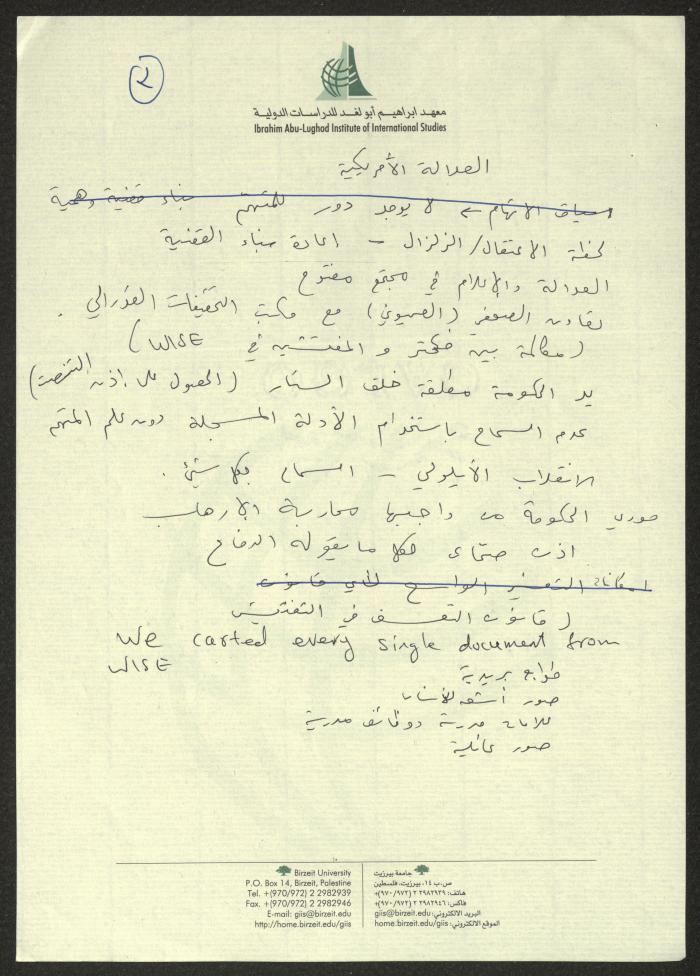 ٢
معهد ابراهيم أبو لغد للدراسات الدولية
Ibrahim Abu-Lughod Institute of International Studies
العدالة الأمريكية
سياق الاتهام ← لا يوجد دور للمتهم بناء قضية وهمية
لحظة الاعتقال/الزلزال - اعادة بناء القضية
العدالة والإعلام في مجتمع مفتوح
تعاون الصحفي (الصهيوني) مع مكتب التحقيقات الفدرالي.
(مكالمة بين و المفتشين في WISE)
يد الحكومة مطلقة خلف الستار (الحصول على اذن التنصت)
عدم السماح باستخدام الأدلة المسجلة دون علم المتهم
الانقلاب الأيلولي - السماح بكل شيئ.
الحكومة من واجبها محاربة الإرهاب
اذن صماء لكل ما يقوله الدفاع
الواسع قانون
(قانون التعسف في التفتيش
We carted every single document from
WISE
طوابع بريدية
صور أشعة للأسنان
علامات مدرسية ووظائف مدرسية
صور عائلية
Birzeit University
P.O. Box 14, Birzeit, Palestine
Tel. +(970/972) 2 2982939
Fax. +(970/972) 2 2982946
E-mail: giis@birzeit.edu
http://home.birzeit.edu/giis
جامعة بيرزيت
ص.ب ١٤، بيرزيت، فلسطين
هاتف: ٢٩٨٢٩٣٩ ٢ (٩٧٠/٩٧٢)+
فاكس: ٢٩٨٢٩٤٦ ٢ (٩٧٠/٩٧٢)+
البريد الالكتروني: giis@birzeit.edu
الموقع الالكتروني: home.birzeit.edu/giis